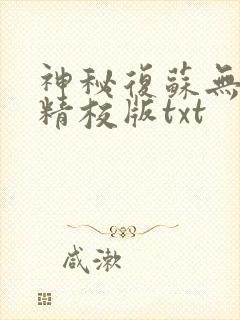 神秘復蘇無
精校版txt
咸漱